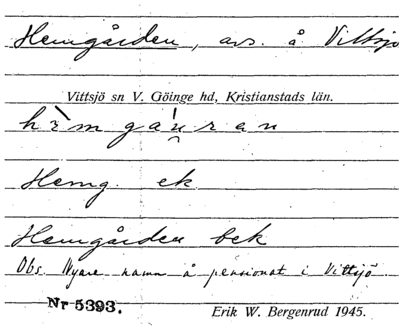 Hemgården, avs. å Vittsjö
Vittsjö sn V. Göinge hd, Kristianstads län.
hèmgáu̯ran
Hemg. ek.
Hemgården bek
Obs. Nyare namn å pensionat i Vittsjö.
Nr 5393.
Erik W. Bergenrud 1945.